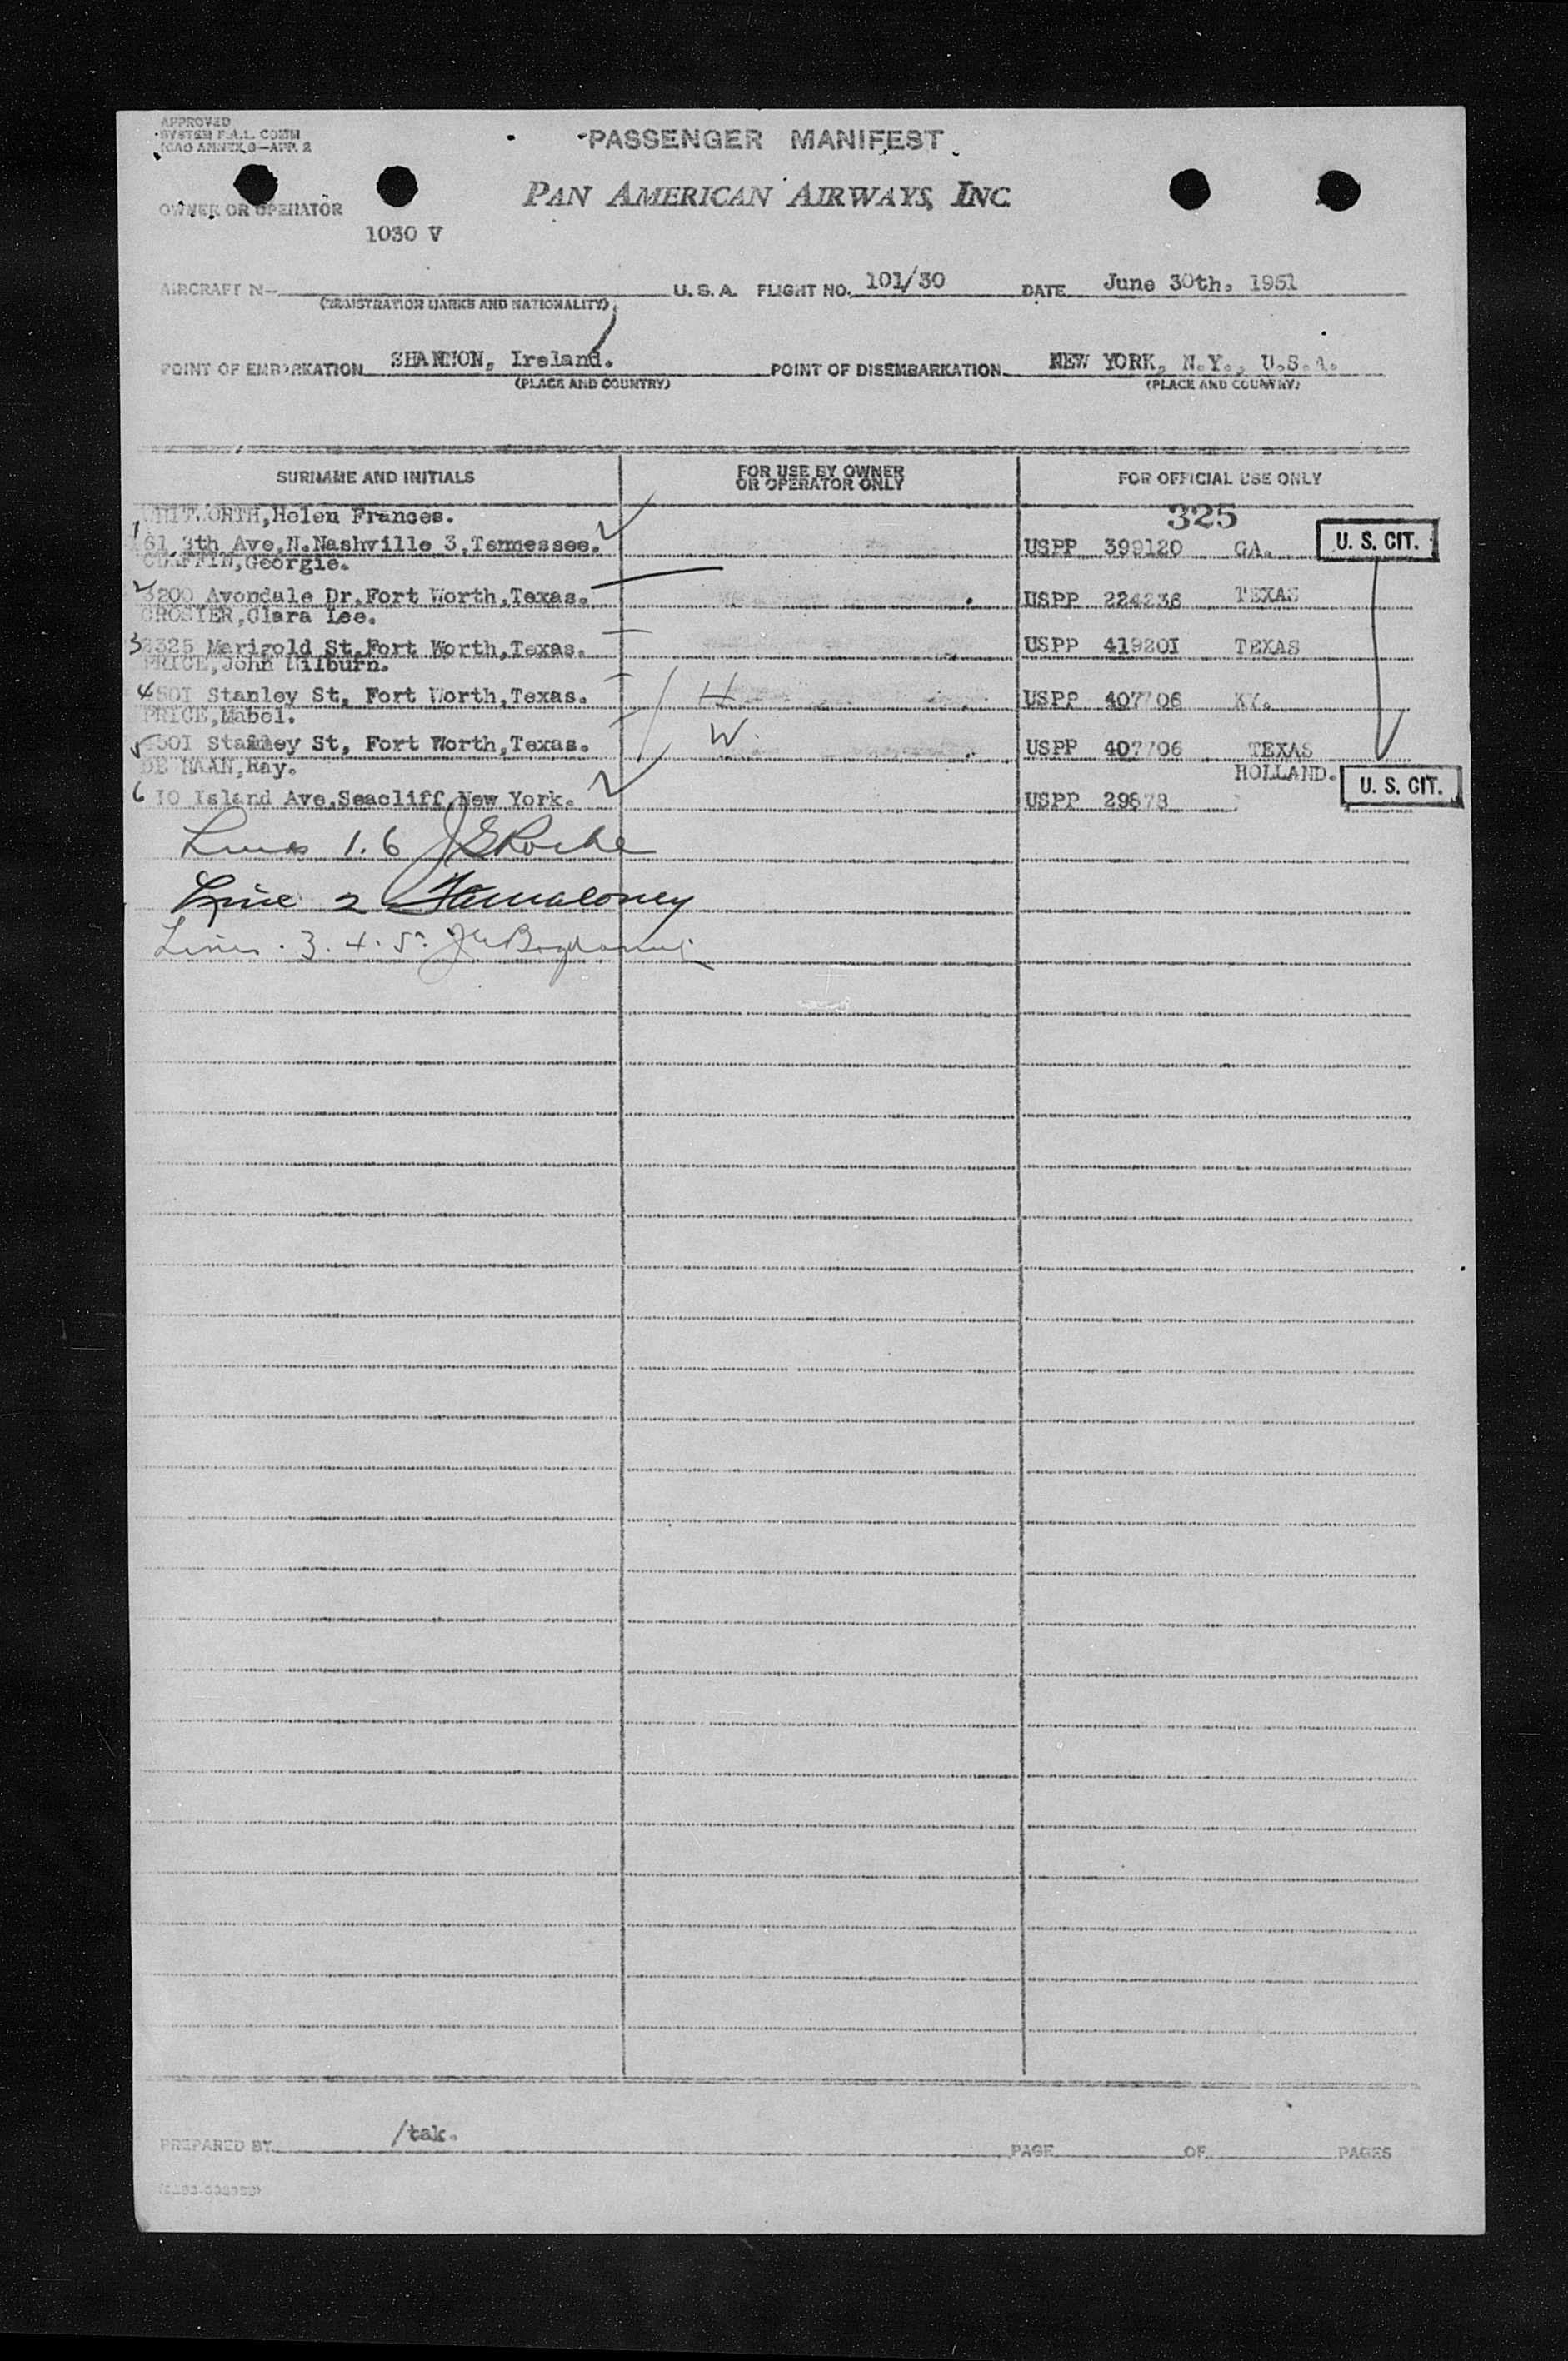 APPROVED
SYSTEM F.A.L. COMM
ICAO ANNEX 9—APP. 2
PASSENGER MANIFEST
PAN AMERICAN AIRWAYS, INC.
OWNER OR OPERATOR
1030 V
AIRCRAFT N— U.S.A. FLIGHT NO. 101/30 DATE June 30th. 1951
(REGISTRATION MARKS AND NATIONALITY)
POINT OF EMBARKATION SHANNON, Ireland. POINT OF DISEMBARKATION NEW YORK, N.Y., U.S.A.
(PLACE AND COUNTRY) (PLACE AND COUNTRY)
SURNAME AND INITIALS FOR USE BY OWNER OR OPERATOR ONLY FOR OFFICIAL USE ONLY
WHITWORTH, Helen Frances. 325
1 Ave, N. Nashville 3, Tennessee. USPP 399120 GA. U. S. CIT.
Georgie.
2 3200 Avondale Dr. Fort Worth, Texas. USPP 224236 TEXAS
CROSIER, Clara Lee.
3 2325 Marigold St. Fort Worth, Texas. USPP 419201 TEXAS
PRICE, John Milburn.
4 Stanley St, Fort Worth, Texas. H USPP 407706 KY.
PRICE, Mabel.
5 Stanley St, Fort Worth, Texas. W. USPP 407706 TEXAS
DE HAAN, Ray. HOLLAND.
6 10 Island Ave, Seacliff, New York. USPP 29878 U. S. CIT.
Lines 1. 6 J G Roche
Line 2 Maloney
Lines. 3. 4. 5.
PREPARED BY /tak. PAGE OF PAGES